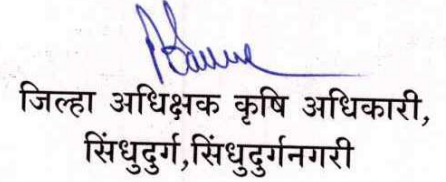 जिल्हा अधिक्षक कृषि अधिकारी,
सिंधुदुर्ग,सिंधुदुर्गनगरी